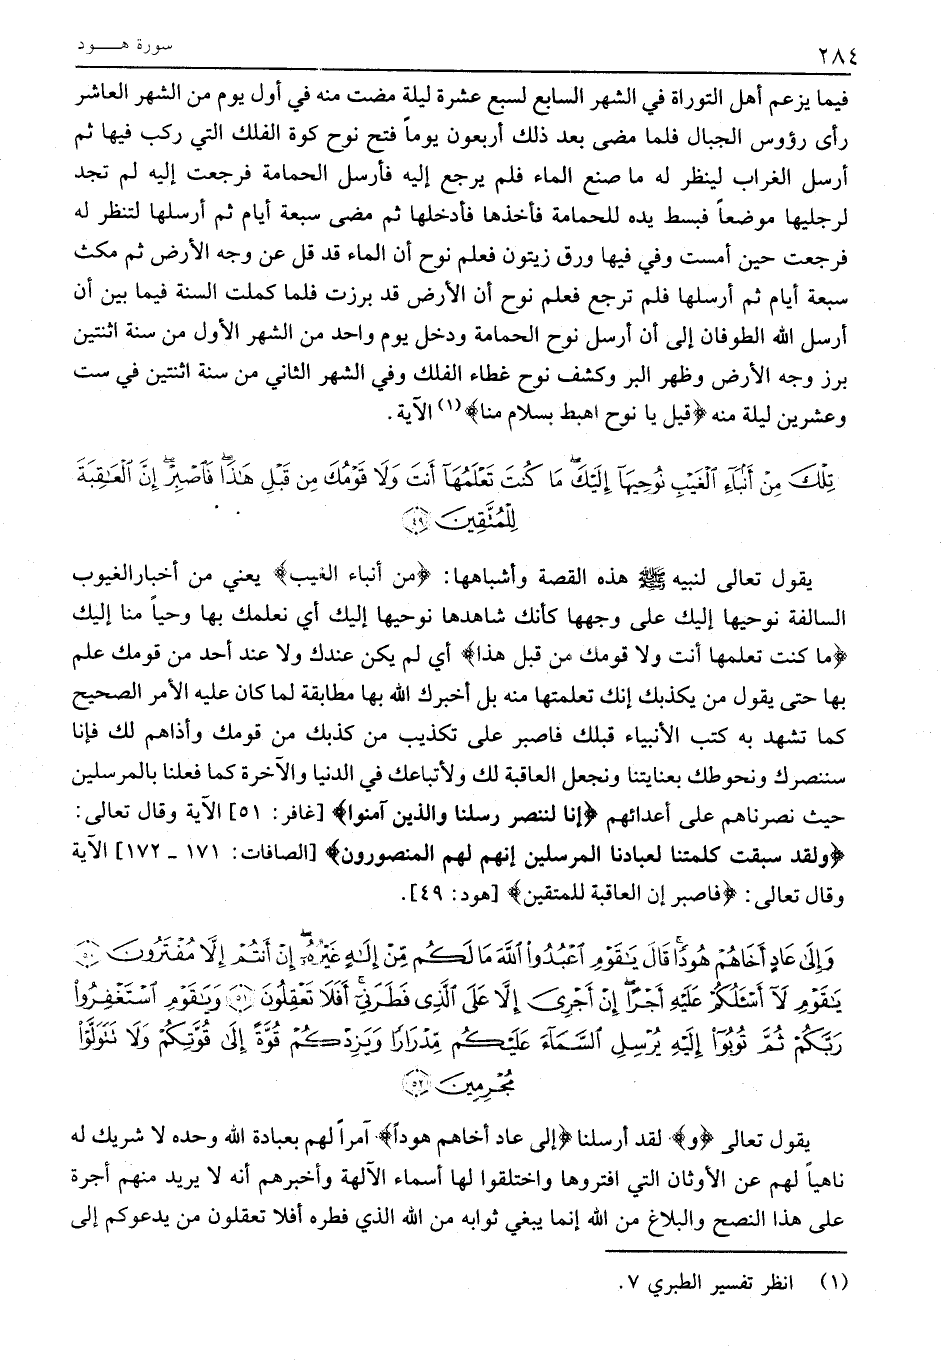 ٢٨٤
سورة هـــود
فيما يزعم أهل التوراة في الشهر السابع لسبع عشرة ليلة مضت منه في أول يوم من الشهر العاشر
رأى رؤوس الجبال فلما مضى بعد ذلك أربعون يوماً فتح نوح كوة الفلك التي ركب فيها ثم
أرسل الغراب لينظر له ما صنع الماء فلم يرجع إليه فأرسل الحمامة فرجعت إليه لم تجد
لرجليها موضعاً فبسط يده للحمامة فأخذها فأدخلها ثم مضى سبعة أيام ثم أرسلها لتنظر له
فرجعت حين أمست وفي فيها ورق زيتون فعلم نوح أن الماء قد قل عن وجه الأرض ثم مكث
سبعة أيام ثم أرسلها فلم ترجع فعلم نوح أن الأرض قد برزت فلما كملت السنة فيما بين أن
أرسل الله الطوفان إلى أن أرسل نوح الحمامة ودخل يوم واحد من الشهر الأول من سنة اثنتين
برز وجه الأرض وظهر البر وكشف نوح غطاء الفلك وفي الشهر الثاني من سنة اثنتين في ست
وعشرين ليلة منه ﴿قيل يا نوح اهبط بسلام منا﴾(١) الآية.
تِلْكَ مِنْ أَنۢبَآءِ ٱلْغَيْبِ نُوحِيهَآ إِلَيْكَ ۖ مَا كُنتَ تَعْلَمُهَآ أَنتَ وَلَا قَوْمُكَ مِن قَبْلِ هَـٰذَا ۖ فَٱصْبِرْ ۖ إِنَّ ٱلْعَـٰقِبَةَ
لِلْمُتَّقِينَ ﴿٤٩﴾
يقول تعالى لنبيه ﷺ هذه القصة وأشباهها: ﴿من أنباء الغيب﴾ يعني من أخبارالغيوب
السالفة نوحيها إليك على وجهها كأنك شاهدها نوحيها إليك أي نعلمك بها وحياً منا إليك
﴿ما كنت تعلمها أنت ولا قومك من قبل هذا﴾ أي لم يكن عندك ولا عند أحد من قومك علم
بها حتى يقول من يكذبك إنك تعلمتها منه بل أخبرك الله بها مطابقة لما كان عليه الأمر الصحيح
كما تشهد به كتب الأنبياء قبلك فاصبر على تكذيب من كذبك من قومك وأذاهم لك فإنا
سننصرك ونحوطك بعنايتنا ونجعل العاقبة لك ولأتباعك في الدنيا والآخرة كما فعلنا بالمرسلين
حيث نصرناهم على أعدائهم ﴿إنا لننصر رسلنا والذين آمنوا﴾ [غافر: ٥١] الآية وقال تعالى:
﴿ولقد سبقت كلمتنا لعبادنا المرسلين إنهم لهم المنصورون﴾ [الصافات: ١٧١ ـ ١٧٢] الآية
وقال تعالى: ﴿فاصبر إن العاقبة للمتقين﴾ [هود: ٤٩].
وَإِلَىٰ عَادٍ أَخَاهُمْ هُودًا ۚ قَالَ يَـٰقَوْمِ ٱعْبُدُوا۟ ٱللَّهَ مَا لَكُم مِّنْ إِلَـٰهٍ غَيْرُهُۥٓ ۖ إِنْ أَنتُمْ إِلَّا مُفْتَرُونَ ﴿٥٠﴾
يَـٰقَوْمِ لَآ أَسْـَٔلُكُمْ عَلَيْهِ أَجْرًا ۖ إِنْ أَجْرِىَ إِلَّا عَلَى ٱلَّذِى فَطَرَنِىٓ ۚ أَفَلَا تَعْقِلُونَ ﴿٥١﴾ وَيَـٰقَوْمِ ٱسْتَغْفِرُوا۟
رَبَّكُمْ ثُمَّ تُوبُوٓا۟ إِلَيْهِ يُرْسِلِ ٱلسَّمَآءَ عَلَيْكُم مِّدْرَارًا وَيَزِدْكُمْ قُوَّةً إِلَىٰ قُوَّتِكُمْ وَلَا تَتَوَلَّوْا۟
مُجْرِمِينَ ﴿٥٢﴾
يقول تعالى ﴿و﴾ لقد أرسلنا ﴿إلى عاد أخاهم هوداً﴾ آمراً لهم بعبادة الله وحده لا شريك له
ناهياً لهم عن الأوثان التي افتروها واختلقوا لها أسماء الآلهة وأخبرهم أنه لا يريد منهم أجرة
على هذا النصح والبلاغ من الله إنما يبغي ثوابه من الله الذي فطره أفلا تعقلون من يدعوكم إلى
(١) انظر تفسير الطبري ٧.